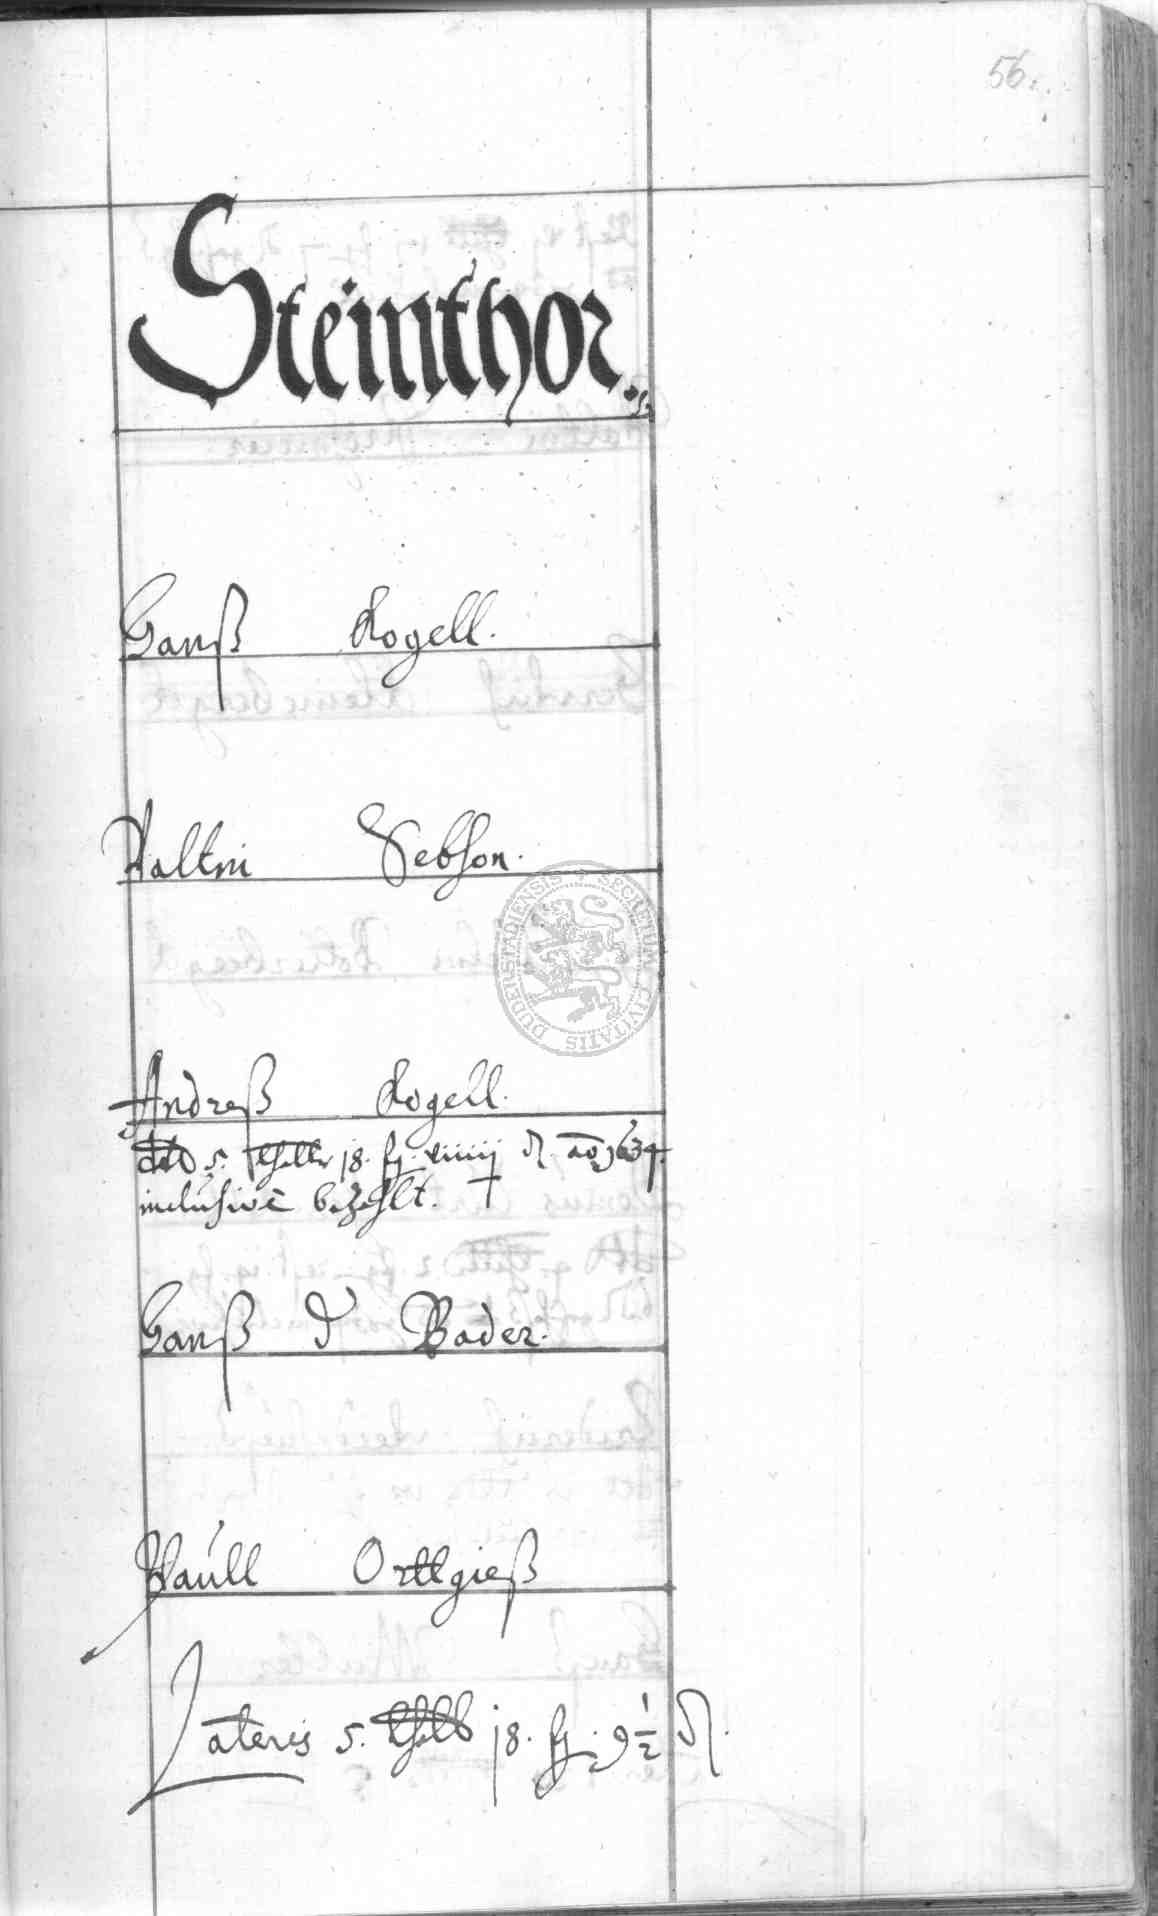 56.
Steinthor.
Hanß Kogell.
Valtin Vebson.
Andreß Kogell.
dedit 5. thaller 18. ßg. ao 1634.
inclusivè bezahlt. †
Hanß d Bader.
Paúll Orttgieß
Lateris 5. thall 18. ßg. 9 1/2 ₰.
DUDERSTADIENSIS * SECRETUM CIVITATIS